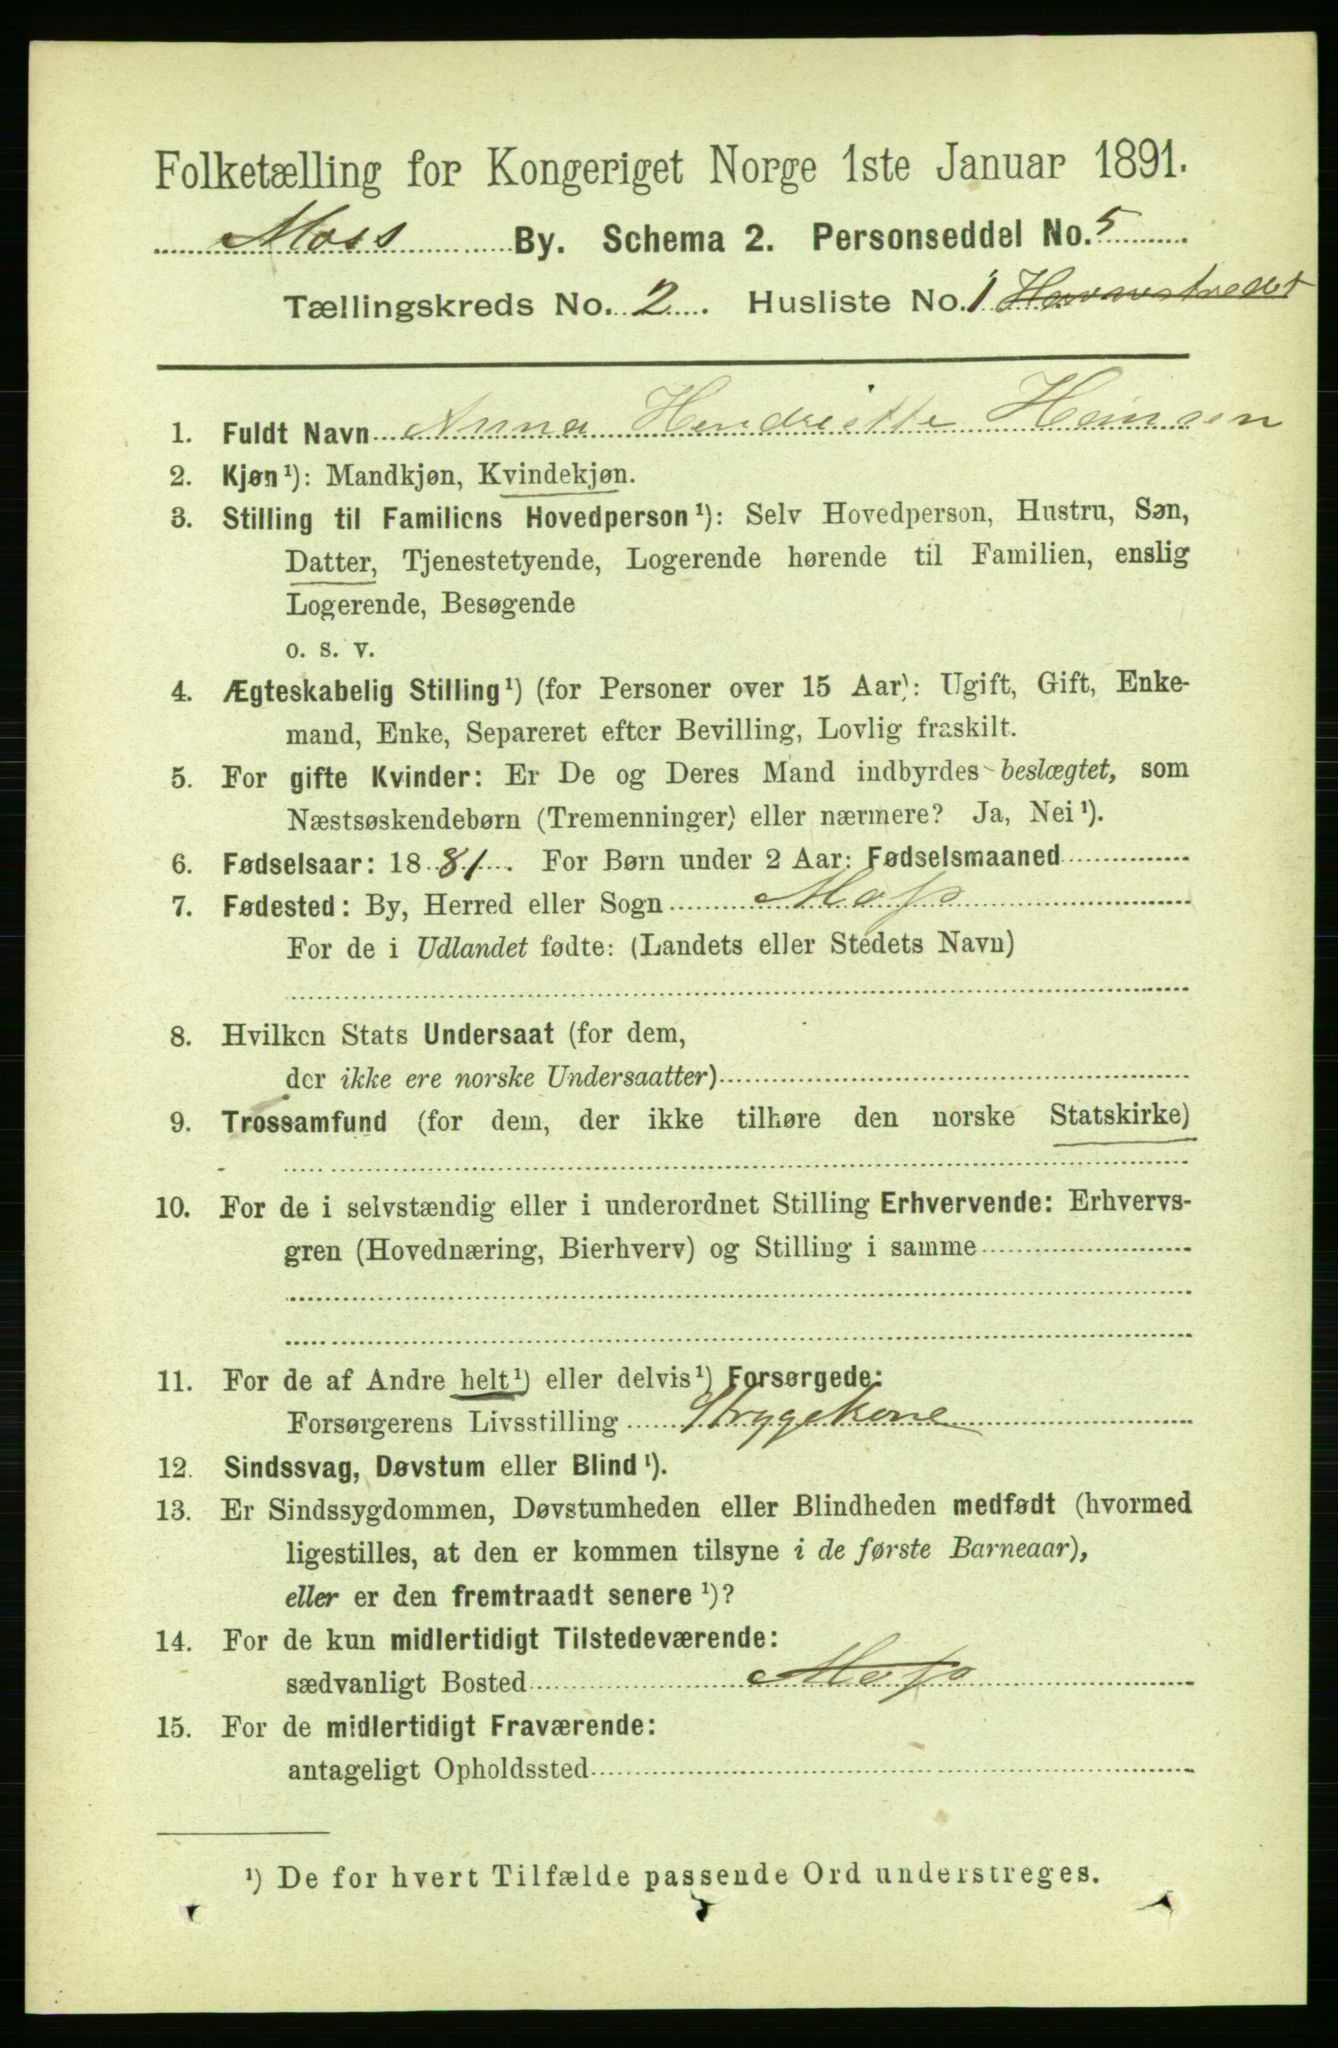 Folketælling for Kongeriget Norge 1ste Januar 1891.
Moss By. Schema 2. Personseddel No. 5
Tællingskreds No. 2. Husliste No. 1 Havnestrædet
1. Fuldt Navn Anna Hendriette Hansen
2. Kjøn¹): Mandkjøn, Kvindekjøn.
3. Stilling til Familiens Hovedperson¹): Selv Hovedperson, Hustru, Søn,
Datter, Tjenestetyende, Logerende hørende til Familien, enslig
Logerende, Besøgende
o. s. v.
4. Ægteskabelig Stilling¹) (for Personer over 15 Aar): Ugift, Gift, Enke-
mand, Enke, Separeret efter Bevilling, Lovlig fraskilt.
5. For gifte Kvinder: Er De og Deres Mand indbyrdes beslægtet, som
Næstsøskendebørn (Tremenninger) eller nærmere? Ja, Nei¹).
6. Fødselsaar: 1881. For Børn under 2 Aar: Fødselsmaaned
7. Fødested: By, Herred eller Sogn Moss
For de i Udlandet fødte: (Landets eller Stedets Navn)
8. Hvilken Stats Undersaat (for dem,
der ikke ere norske Undersaatter)
9. Trossamfund (for dem, der ikke tilhøre den norske Statskirke)
10. For de i selvstændig eller i underordnet Stilling Erhvervende: Erhvervs-
gren (Hovednæring, Bierhverv) og Stilling i samme
11. For de af Andre helt¹) eller delvis¹) Forsørgede:
Forsørgerens Livsstilling Strygekone
12. Sindssvag, Døvstum eller Blind¹).
13. Er Sindssygdommen, Døvstumheden eller Blindheden medfødt (hvormed
ligestilles, at den er kommen tilsyne i de første Barneaar),
eller er den fremtraadt senere¹)?
14. For de kun midlertidigt Tilstedeværende:
sædvanligt Bosted Moss
15. For de midlertidigt Fraværende:
antageligt Opholdssted
¹) De for hvert Tilfælde passende Ord understreges.